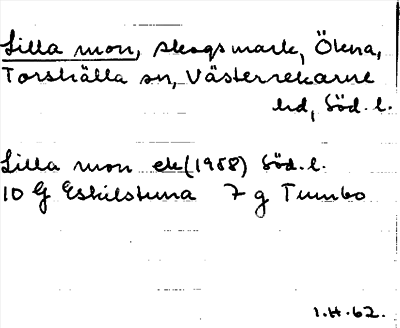 Lilla mon, skogsmark, Ökna,
Torshälla sn, Västerrekarne
hd, Söd. l.
Lilla mon ek (1958) Söd. l.
10 G Eskilstuna 7 g Tumbo
1.H.62.